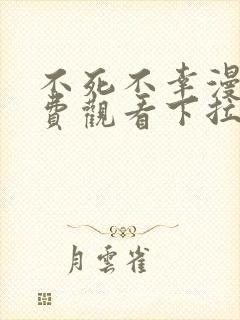 不死不幸漫
費觀看下拉
月雲雀